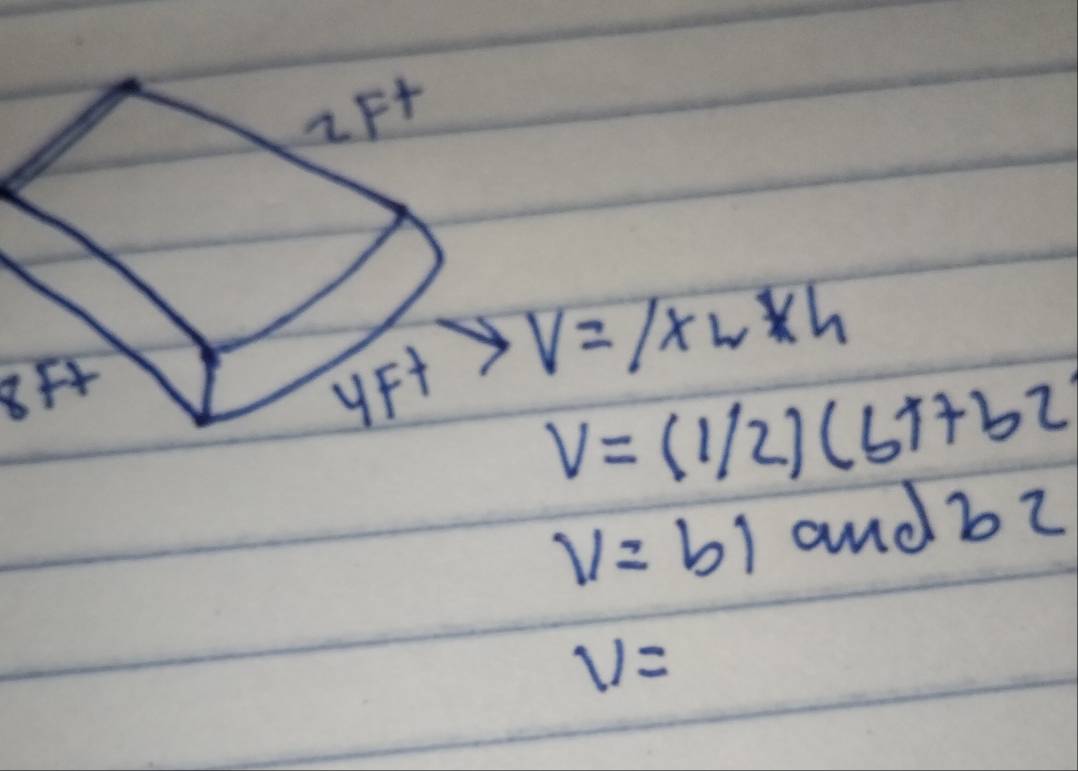 2Ft
8Ft
4Ft
V = l x w * h
V = (1/2)(b1+b2
V = b1 and b2
V =